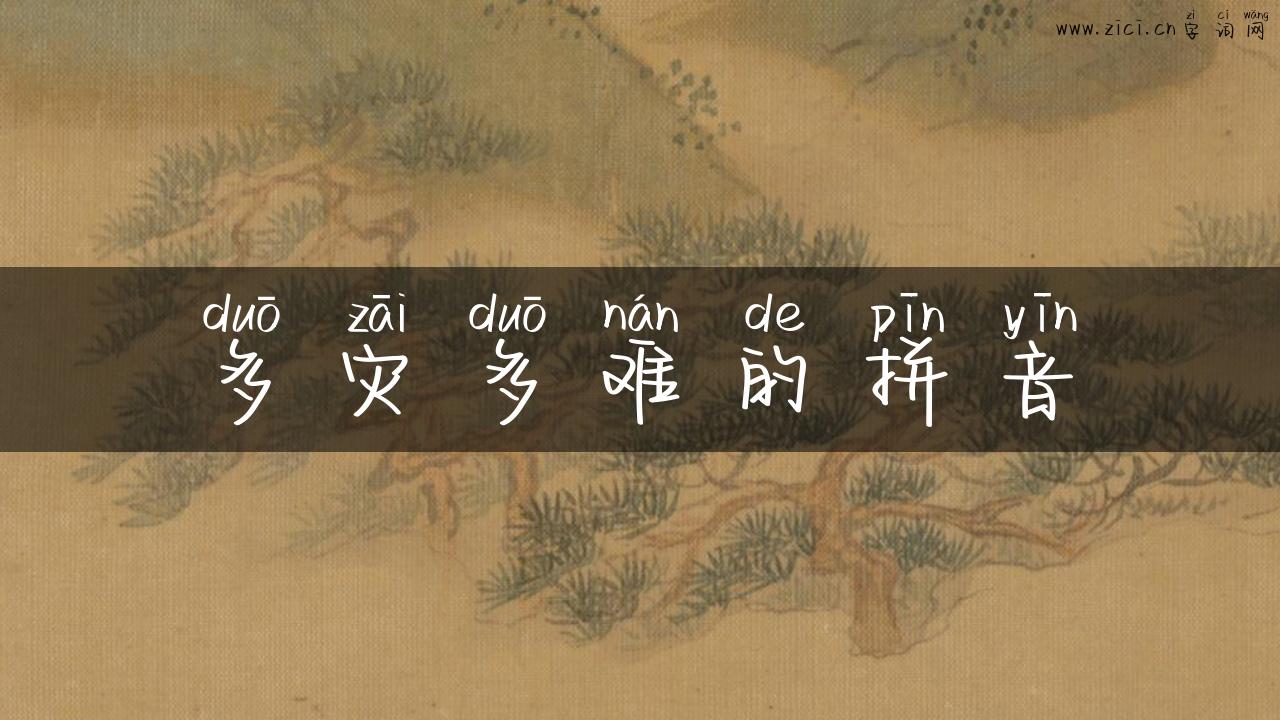 zì cí wǎng
www.zìcí.cn 字词网
duō zāi duō nán de pīn yīn
多灾多难的拼音